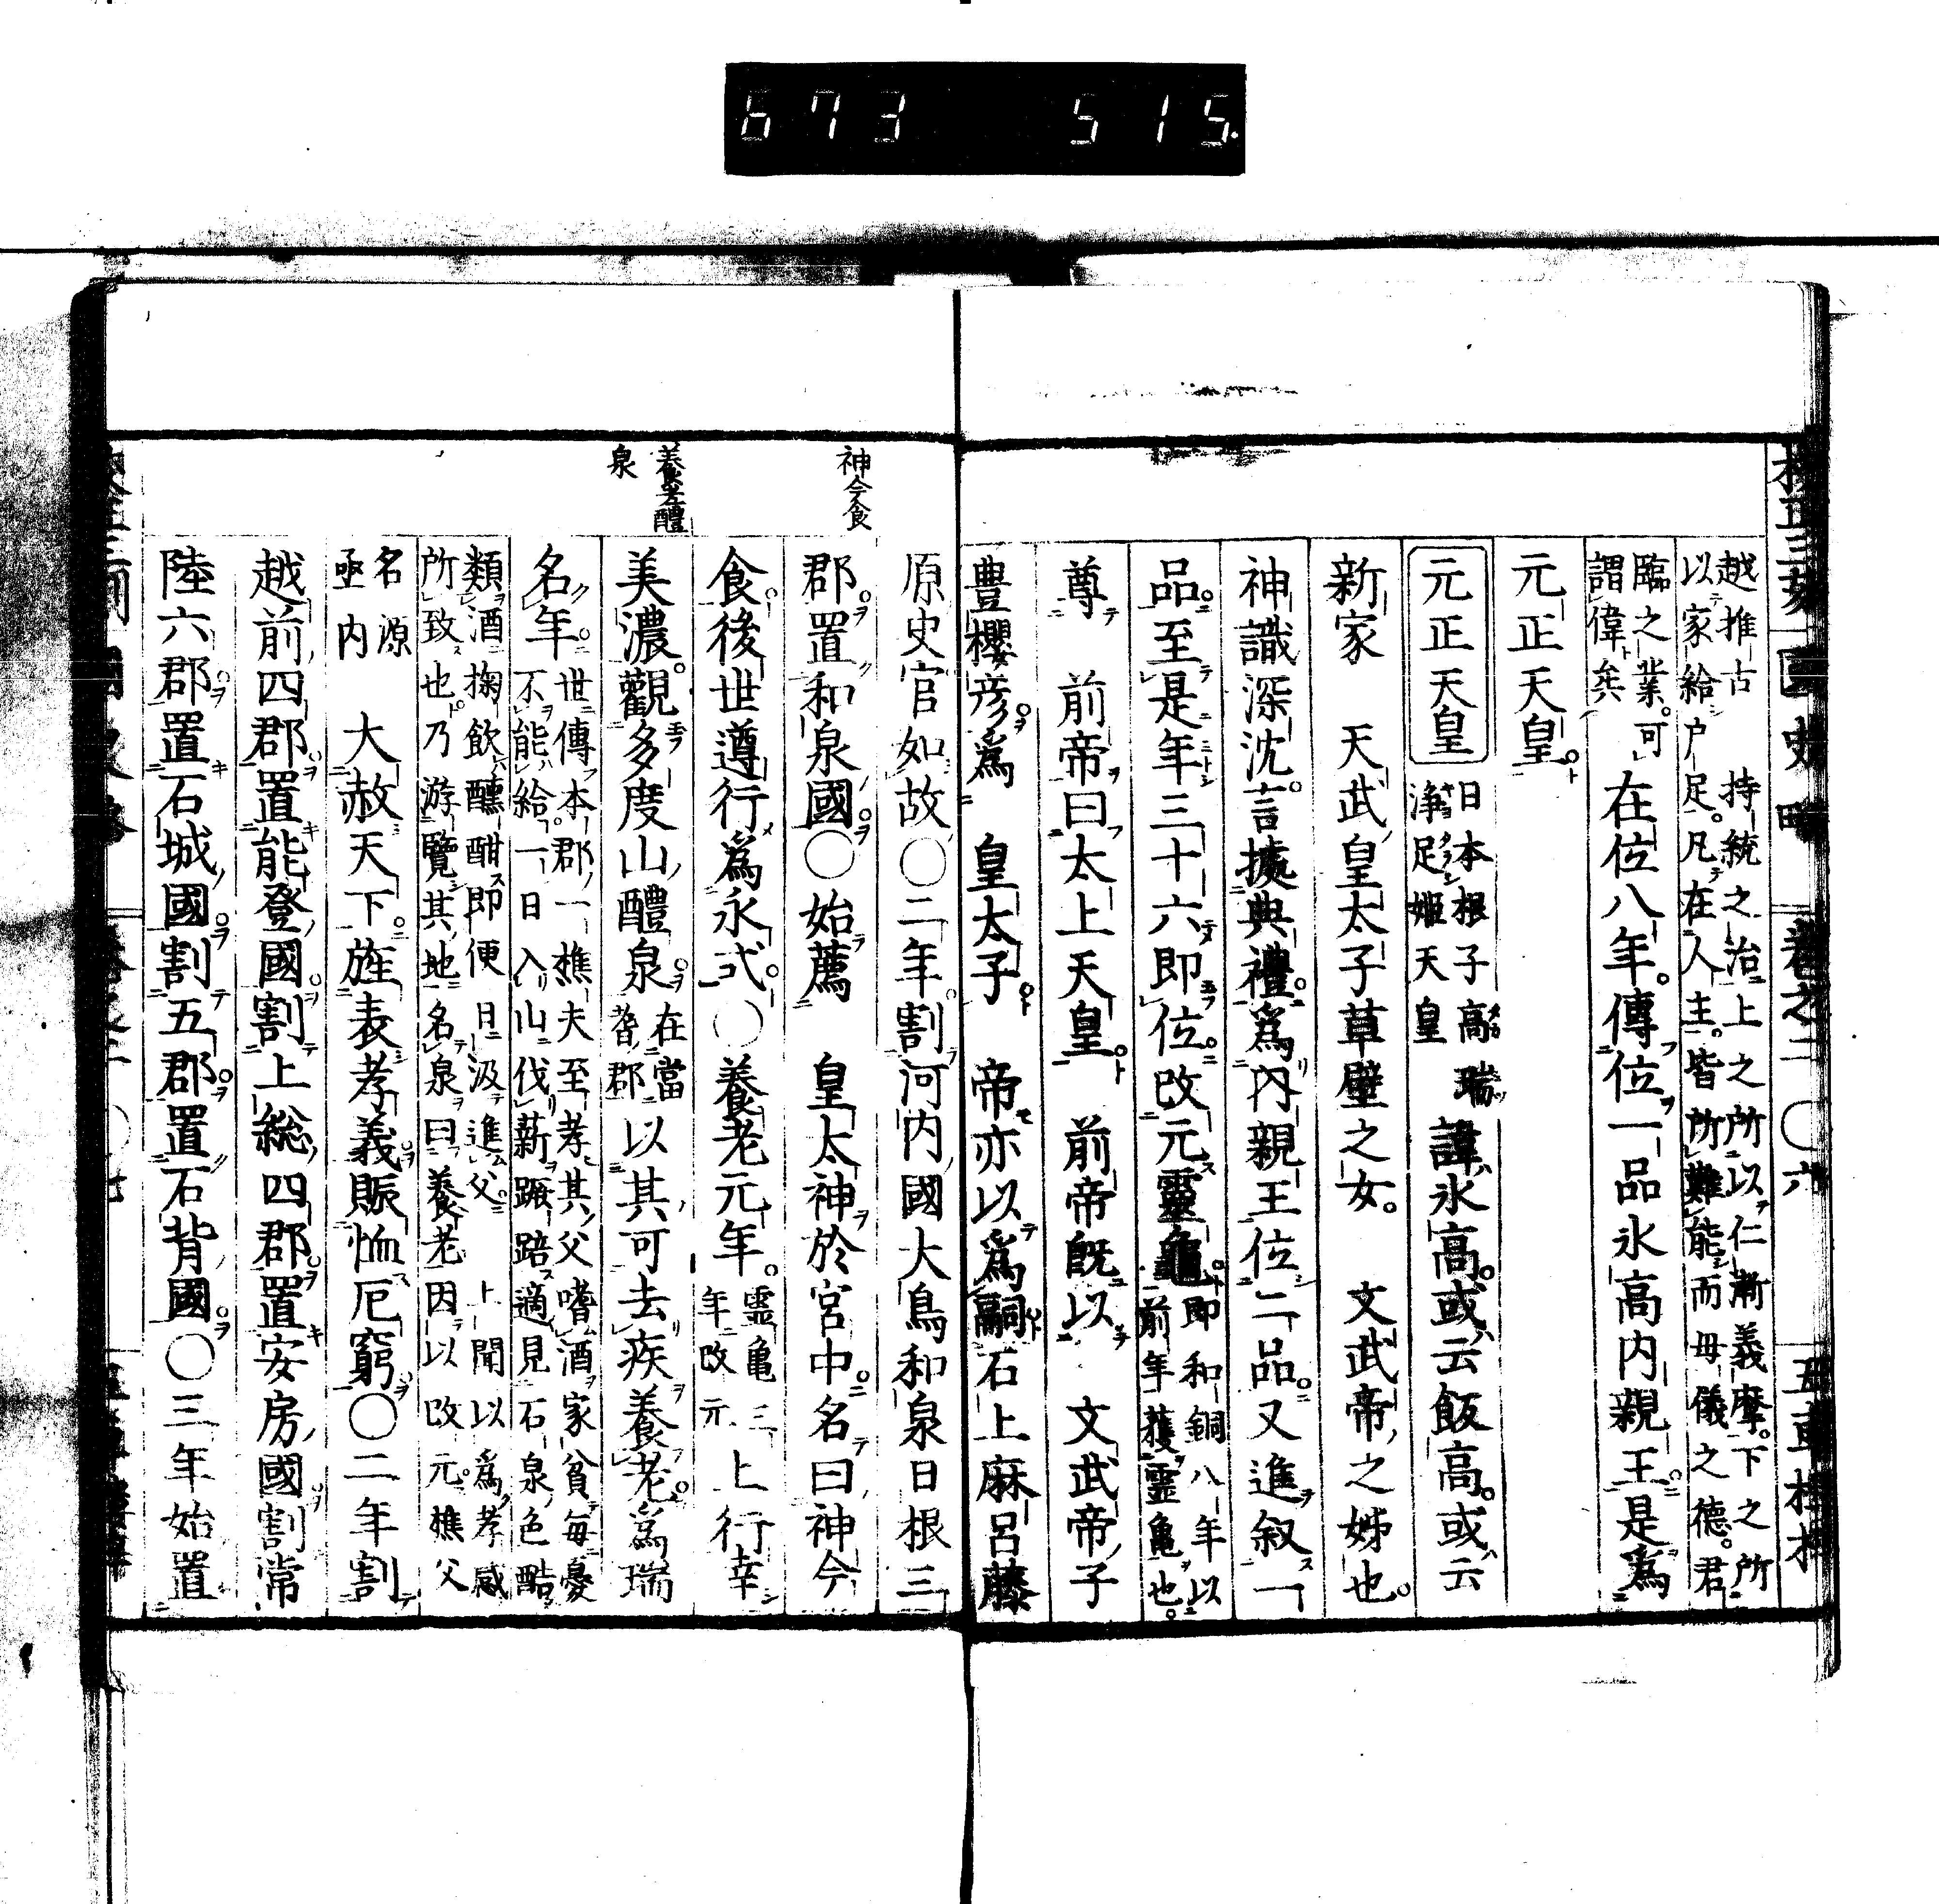 673 515.
越推古　持統之治上之所以仁漸義摩下之所
以家給戸足凡在人主皆所難能而母儀之德君
臨之業可
謂偉矣
在位八年傳位一品氷高内親王是爲
元正天皇
元正天皇
日本根子高瑞
淨足姬天皇
諱氷高或云飯高或云
新家　天武皇太子草壁之女　文武帝之姊也
神識深沈言據典禮爲内親王位二品又進叙一
品至是年三十六即位改元靈龜
即和銅八年以
前年獲靈亀也
尊　前帝曰太上天皇　前帝既以　文武帝子
豊櫻彦爲　皇太子　帝亦以爲嗣石上麻呂藤
原史官如故〇二年割河内國大鳥和泉日根三
神今食
郡置和泉國〇始薦　皇太神於宮中名曰神今
食後世遵行爲永式〇養老元年
霊亀三
年改元
上行幸
養老醴
泉
美濃觀多度山醴泉
在當
耆郡
以其可去疾養老爲瑞
名年
世傳本郡一樵夫至孝其父嗜酒家貧毎憂
不能給一日入山伐薪蹶踣適見石泉色酷
類酒掬飲醺酣即便日汲進父　上聞以爲孝感
所致也乃游覽其地名泉曰養老因以改元樵父
名源
丞内
大赦天下旌表孝義賑恤厄窮〇二年割
越前四郡置能登國割上総四郡置安房國割常
陸六郡置石城國割五郡置石背國〇三年始置